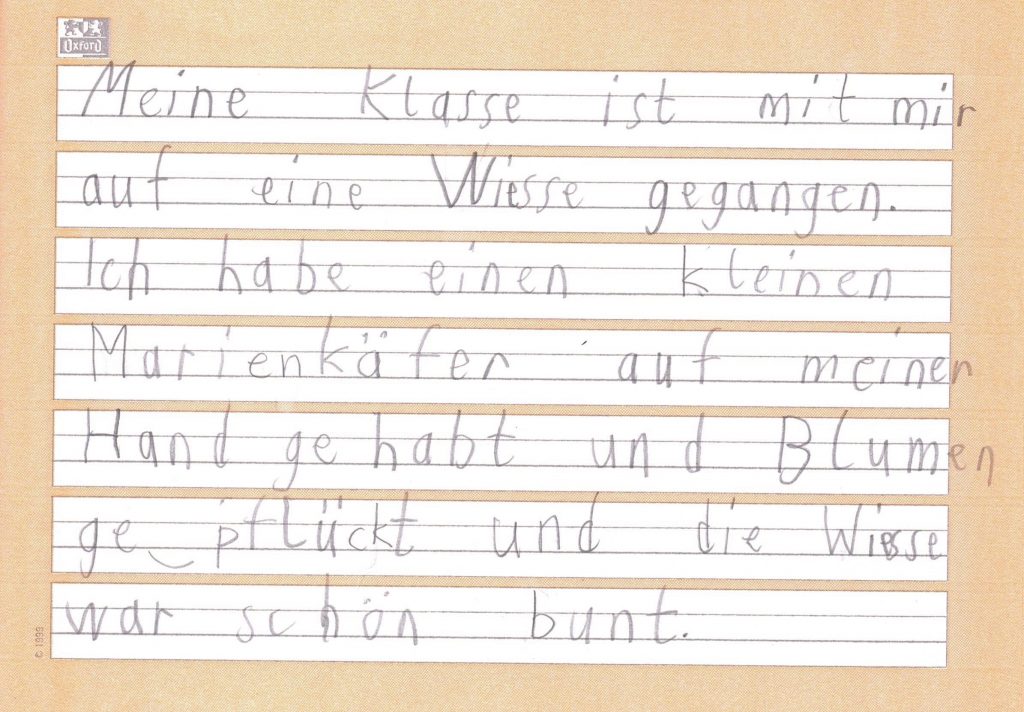 Oxford
Meine Klasse ist mit mir
auf eine Wiesse gegangen.
Ich habe einen kleinen
Marienkäfer auf meinen
Hand gehabt und Blumen
ge pflückt und die Wiesse
war schön bunt.
© 1999